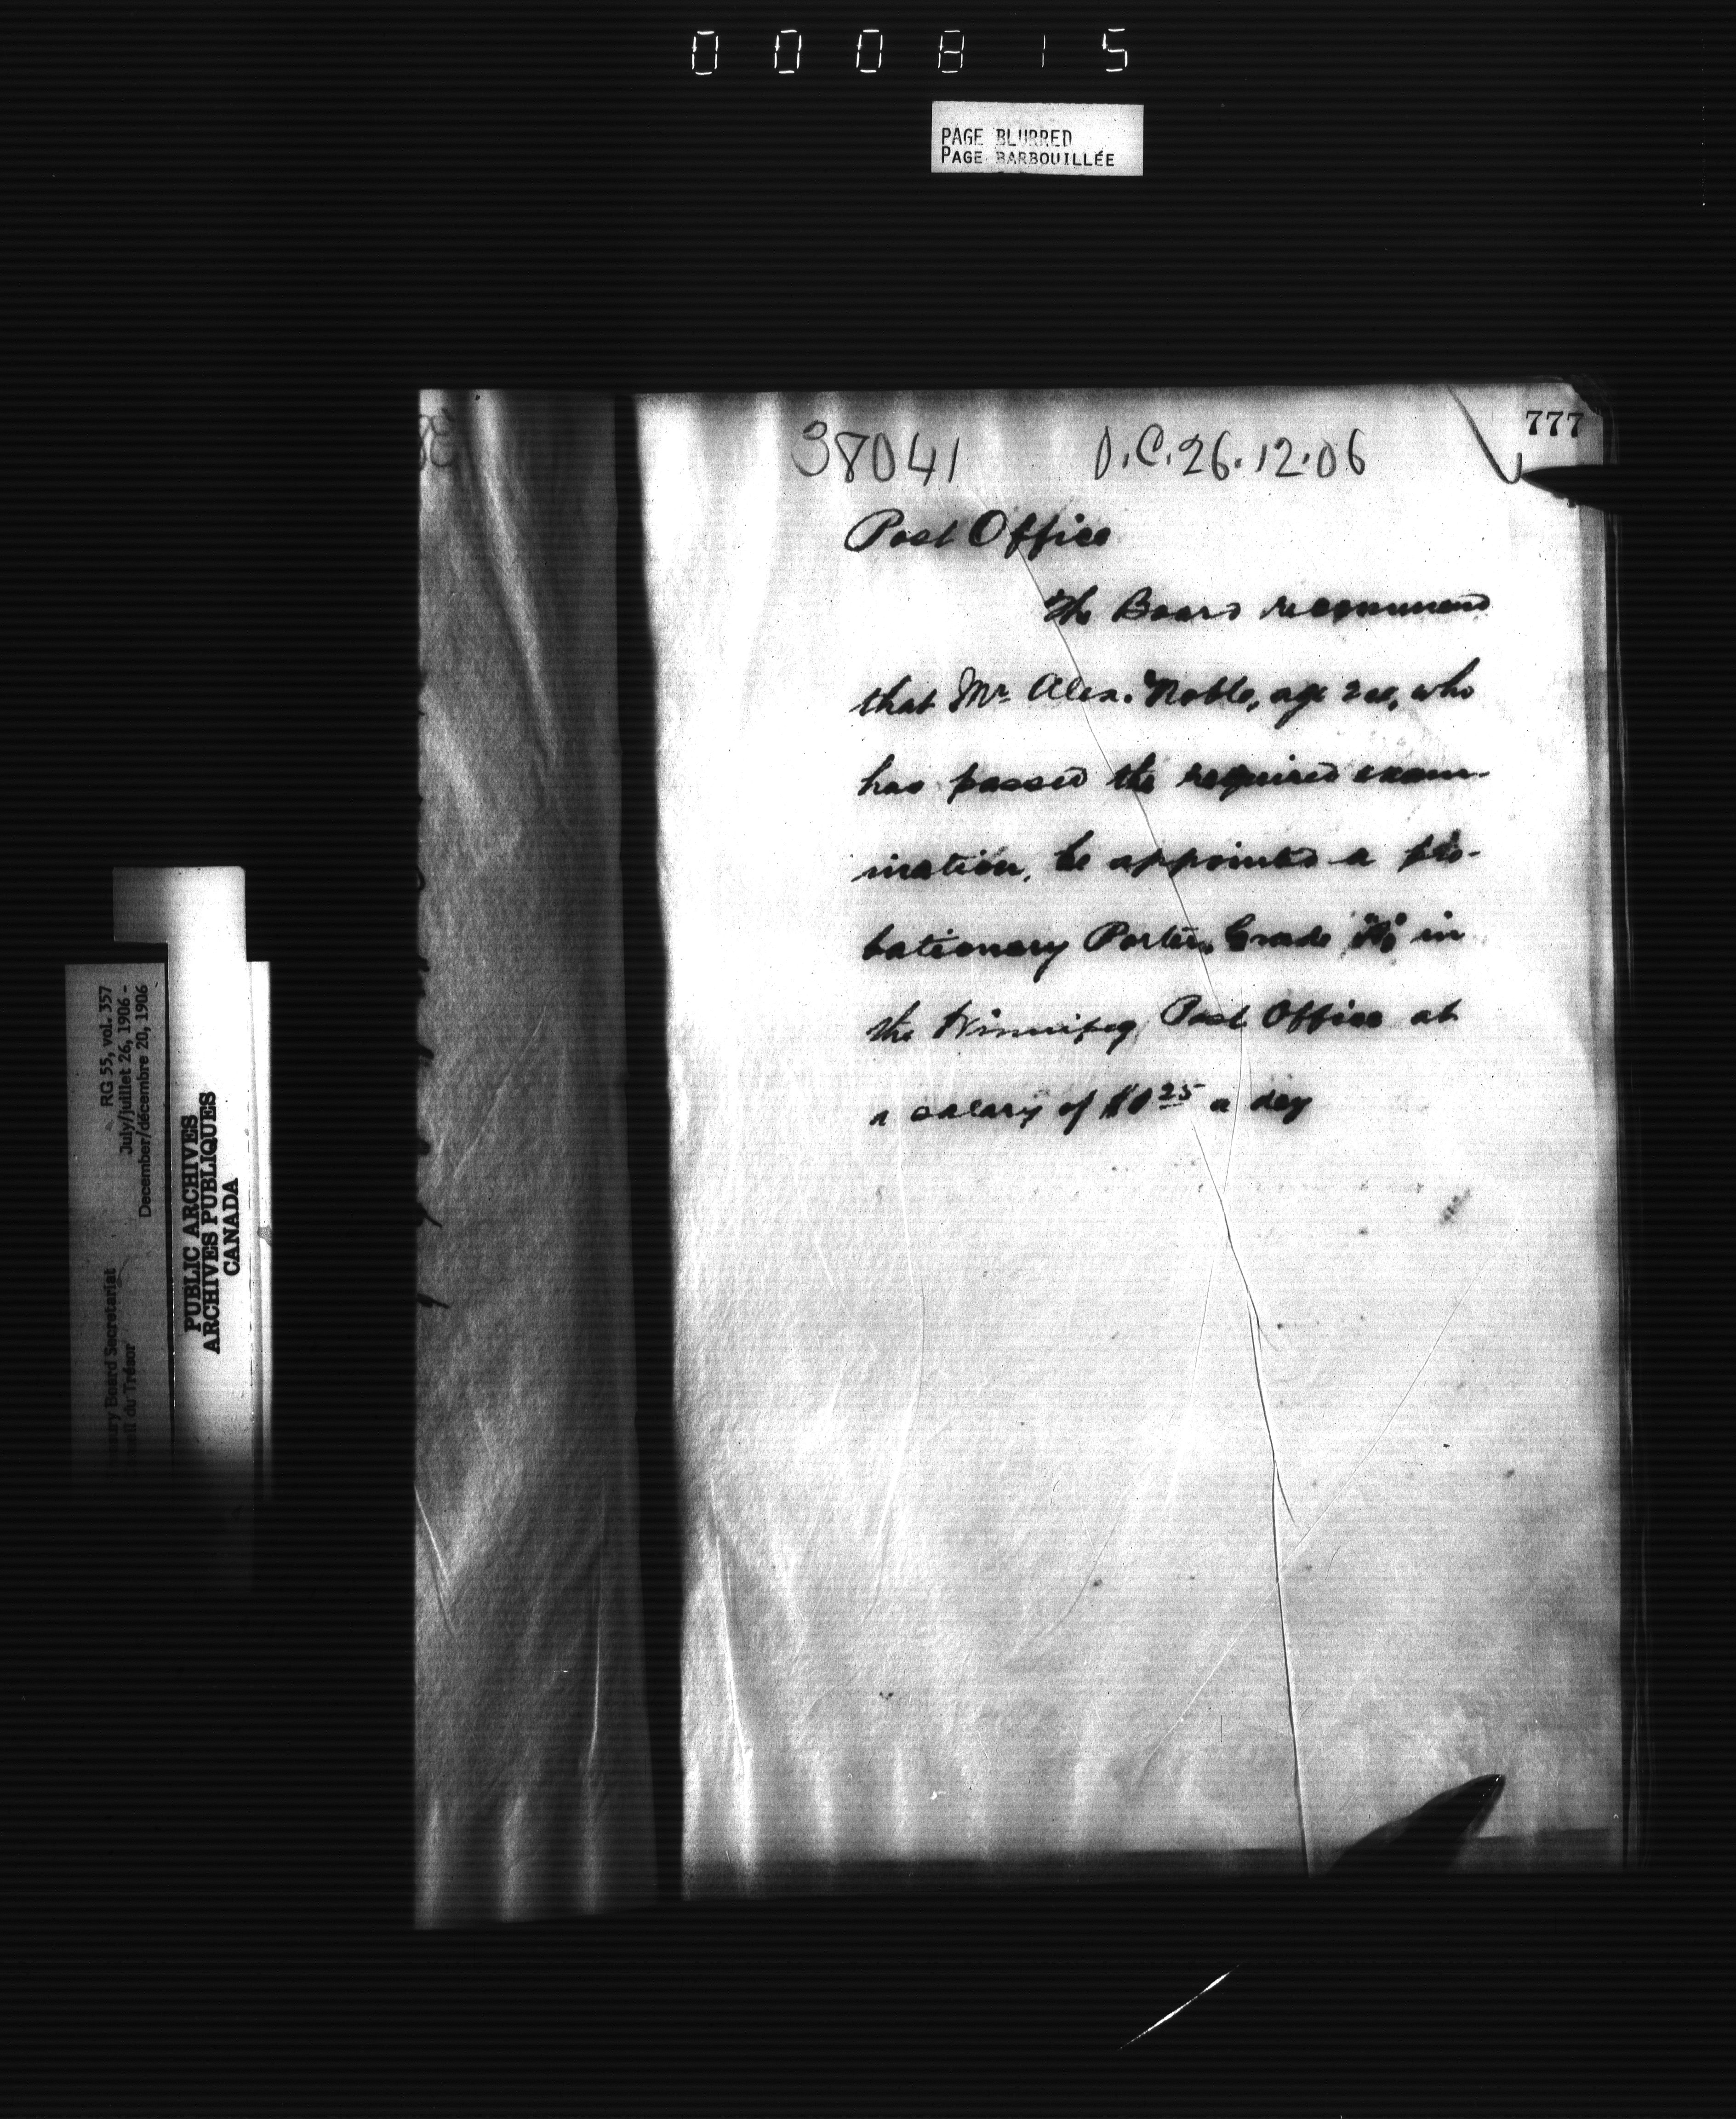 000815
PAGE BLURRED
PAGE BARBOUILLÉE
777
38041 O.C. 26.12.06
Post Office
The Board recommend
that Mr Alex. Noble, age who
has passed the required exam-
ination, be appointed a pro-
bationary Porter, Grade in
the Winnipeg Post Office at
a salary of $1 25 a day
RG 55, vol. 357
July/juillet 26, 1906 -
December/décembre 20, 1906
Board Secretariat
du Trésor
PUBLIC ARCHIVES
ARCHIVES PUBLIQUES
CANADA